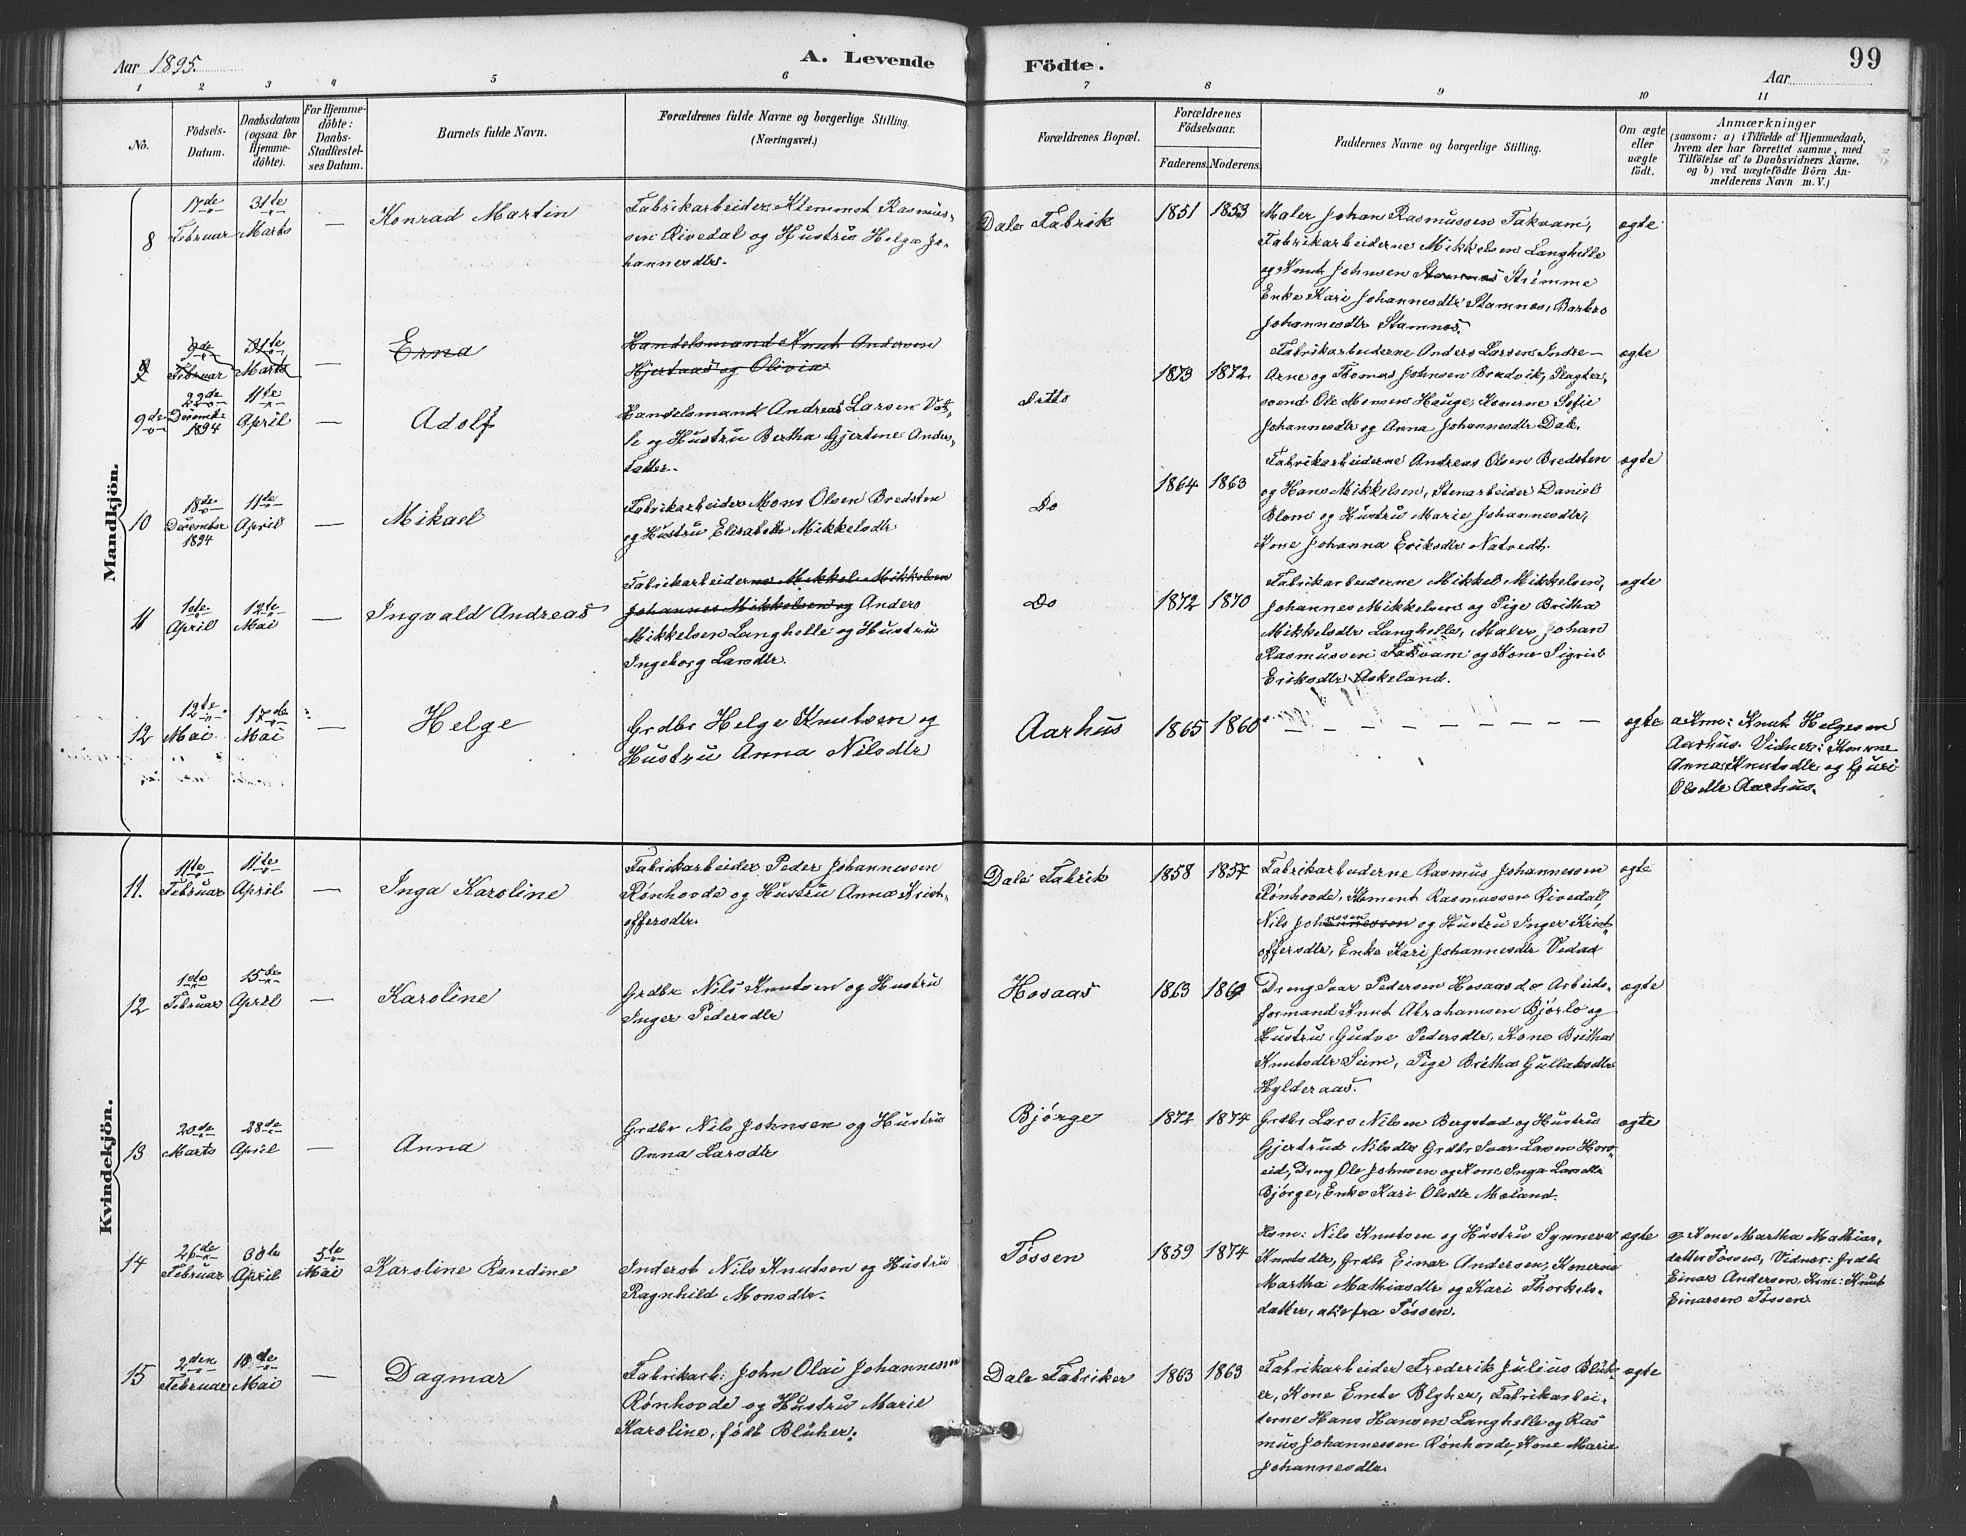 Aar 1895.
A. Levende
Födte.
Aar
99
1 2 3 4 5 6 7 8 9 10 11
No.
Födsels-
Datum.
Daabsdatum
(ogsaa for
Hjemme-
döbte).
For Hjemme-
döbte:
Daabs-
Stadfæstel-
ses Datum.
Barnets fulde Navn.
Forældrenes fulde Navne og borgerlige Stilling.
(Næringsvei.)
Forældrenes Bopæl.
Forældrenes
Födselsaar.
Faderens. Moderens.
Faddernes Navne og borgerlige Stilling.
Om ægte
eller
uægte
födt.
Anmærkninger
(saasom: a) i Tilfælde af Hjemmedaab,
hvem der har forrettet samme, med
Tilföielse af to Daabsvidners Navne,
og b) ved uægtefödte Börn An-
melderens Navn m. V.)
Mandkjön.
8
17de
Februar
31te
Marts
—
Konrad Martin
Fabrikarbeider Klemmet Rasmus-
sen Rivedal og Hustru Helga Jo-
hannesdtr.
Dale Fabrik
1851 1853
Maler Johan Rasmussen Takvam,
Fabrikarbeiderne Mikkelsen Langhelle
og Knut Johnsen Stamnes Strømme
Enke Kari Johannesdtr Stamnes, Barbro
Johannesdtr Stamnes.
ægte
9de
Februar
31te
Marts
—
Erna
Handelsmand Knut Andersen
Hjertaas og Olivia
9de
22de
December
1894
11te
April
—
Adolf
Handelsmand Andreas Larsen Vas-
le og Hustru Bertha Gjertine Anders-
datter.
Ditto
1873 1872
Fabrikarbeiderne Anders Larsen Indre-
Arne og Thomas Johnsen Bradvik, Slagter-
svend Ole Monsen Hauge, Konerne Sofie
Johannesdtr og Anna Johannesdtr Dale.
ægte
10
18de
December
1894
11te
April
—
Mikael
Fabrikarbeider Mons Olsen Bredsten
og Hustru Elisabeth Mikkelsdtr
Do
1864 1863
Fabrikarbeiderne Andreas Olsen Bredsten
og Hans Mikkelsen, Stenarbeider Daniel
Blom og Hustru Marie Johannesdtr,
Kone Johanna Eriksdtr Natvedt.
ægte
11
1ste
April
12te
Mai
—
Ingvald Andreas
Fabrikarbeiderne Mikkel Mikkelsen
Johannes Mikkelsen og Anders
Mikkelsen Langhelle og Hustru
Ingeborg Larsdtr.
Do
1872 1870
Fabrikarbeiderne Mikkel Mikkelsen,
Johannes Mikkelsen og Pige Britha
Mikkelsdtr Langhelle, Maler Johan
Rasmussen Takvam og Kone Sigrid
Eriksdtr Askeland.
ægte
12
12te
Mai
17de
Mai
—
Helge
Grdbr Helge Knutsen og
Hustru Anna Nilsdtr
Aarhus
1865 1860
— — — — — — — — —
ægte
a. Km: Knut Helgesen
Aarhus. Vidner: Konerne
Anna Knutsdtr og Guri
Olsdtr Aarhus.
Kvindekjön.
11.
11te
Februar
11te
April
—
Inga Karoline
Fabrikarbeider Peder Johannessen
Rønhovde og Hustru Anna Krist-
offersdtr.
Dale Fabrik
1858 1857
Fabrikarbeiderne Rasmus Johannessen
Rønhovde, Klement Rasmussen Rivedal,
Nils Johannessen og Hustru Inger Krist-
offersdtr, Enke Kari Johannesdtr Vedaa
ægte
12
1ste
Februar
15de
April
—
Karoline
Grdbr Nils Knutsen og Hustru
Inger Pedersdtr
Hosaas
1863
Dreng Ivar Pedersen Hosaas do Arbeids-
formand Knut Abrahamsen Bjørlo og
Hustru Gudve Pedersdtr, Kone Britha
Knutsdtr Seim, Pige Britha Gullaksdtr
Hylderaas.
ægte
13
20de
Marts
28de
April
—
Anna
Grdbr Nils Johnsen og Hustru
Anna Larsdtr
Bjørge
1872 1874
Grdbr Lars Nilsen Bergstad og Hustru
Gjertrud Nilsdtr Grdbr Ivar Larsen Horv-
eid, Dreng Ole Johnsen og Kone Inga Larsdtr
Bjørge, Enke Kari Olsdtr Moland.
ægte
14
26de
Februar
30te
April
5te
Mai
Karoline Randine
Inderst Nils Knutsen og Hustru
Ragnhild Monsdtr.
Tøssen
1859 1874
Hsm: Nils Knutsen og Hustru Synneva
Knutsdtr, Grdbr Einar Andersen, Konerne
Martha Mathiasdtr og Kari Thorkels-
datter, alle fra Tøssen.
ægte
a. Kone Martha Mathias-
datter Tøssen, Vidner: Grdbr
Einar Andersen, Km: Knut
Einarsen Tøssen
15
2den
Februar
10de
Mai
—
Dagmar
Fabrikarb: John Olai Johannesen
Rønhovde og Hustru Marie
Karoline, født Blüher.
Dale Fabriker
1863 1863
Fabrikarbeider Frederik Julius Blüh-
er, Kone Emte Blyher, Fabrikarbei-
derne Hans Hansen Langhelle og Ras
mus Johannessen Rønhovde, Kone Marie
Johannesdtr
ægte